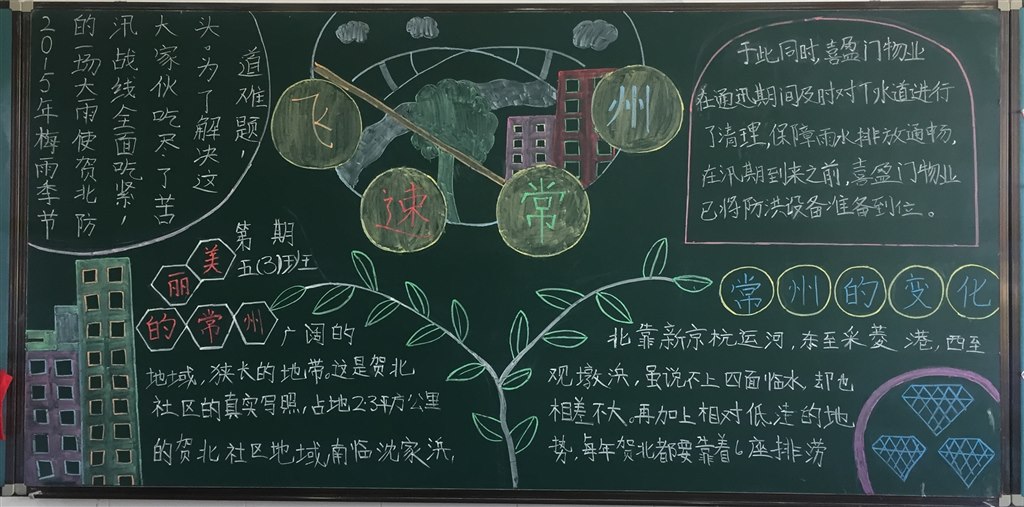 2015年梅雨季节
的一场大雨使贺北防
汛战线全面吃紧，
大家伙吃尽了苦
头。为了解决这
道难题，
飞速常州
于此同时，喜盈门物业
在通汛期间及时对下水道进行
了清理，保障雨水排放通畅，
在汛期到来之前，喜盈门物业
已将防洪设备准备到位。
第 期
五(3)班
美丽
的常州
广阔的
地域，狭长的地带。这是贺北
社区的真实写照，占地2.3平方公里
的贺北社区地域南临沈家浜，
常州的变化
北靠新京杭运河，东至采菱港，西至
观墩浜，虽说不上四面临水却也
相差不大。再加上相对低洼的地
势，每年贺北都要靠着6座排涝